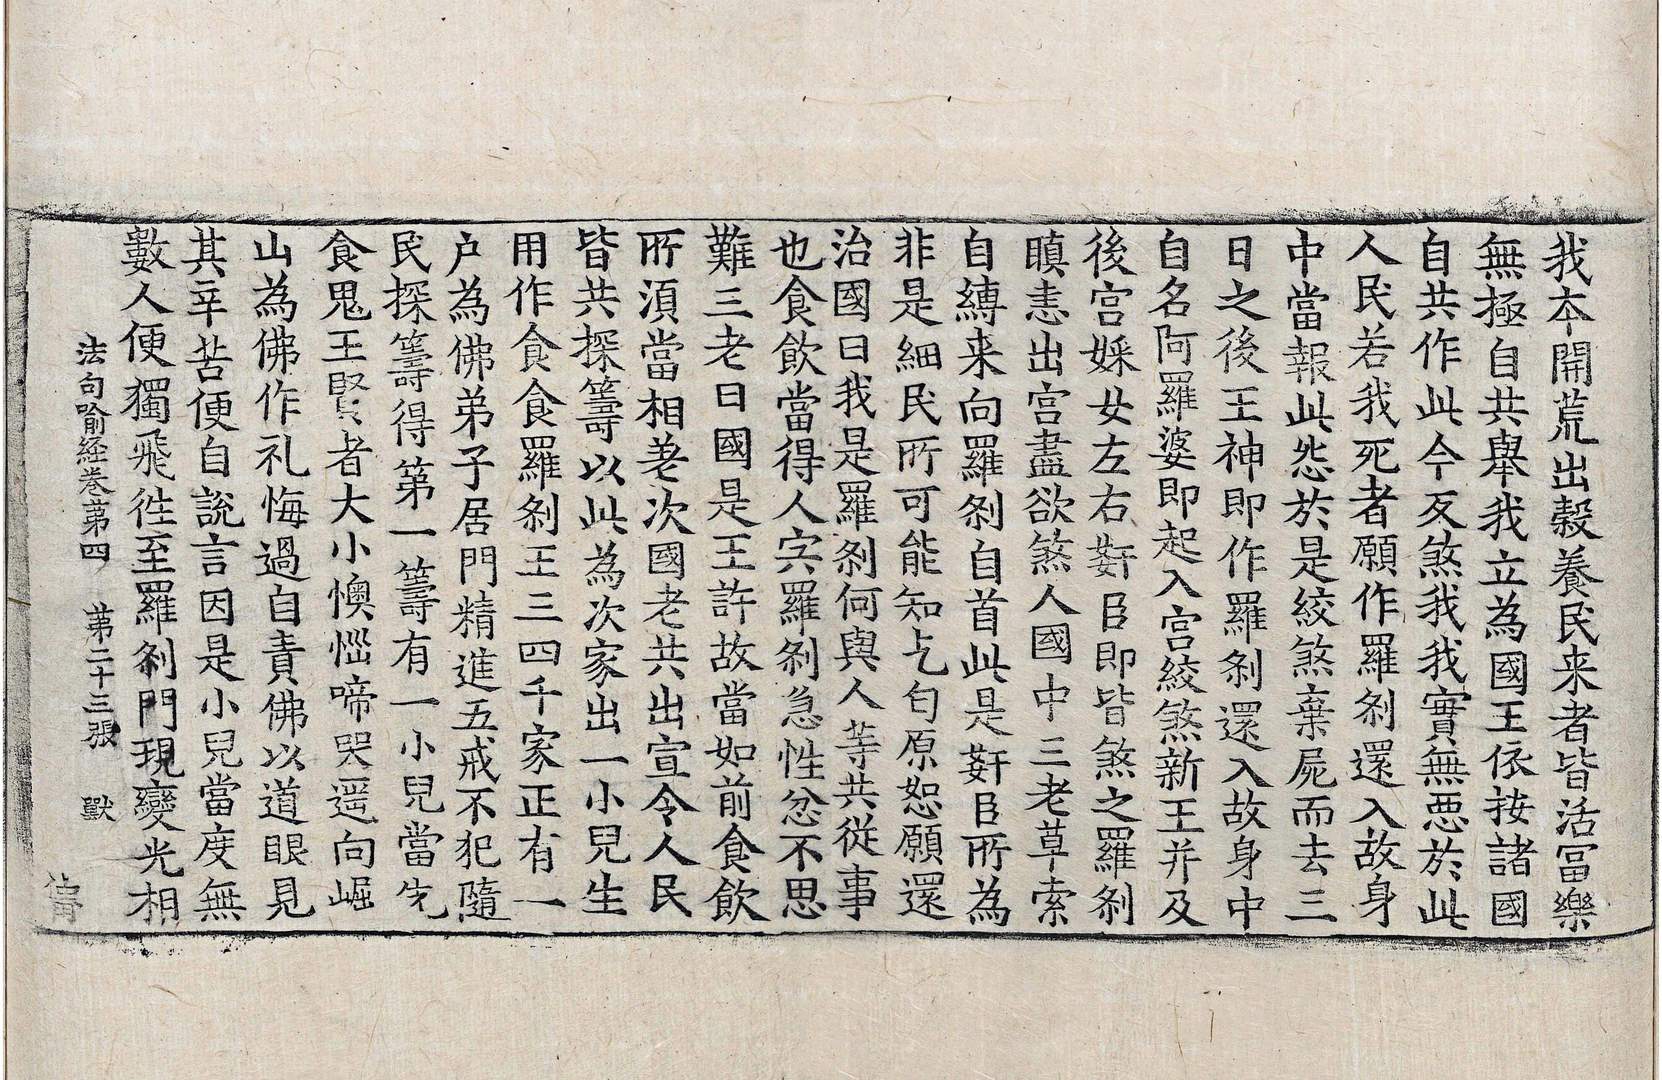 我本開荒出穀養民来者皆活冨樂
無極自共舉我立為國王依按諸國
自共作此今反煞我我實無惡於此
人民若我死者願作羅剎還入故身
中當報此怨於是絞煞棄屍而去三
日之後王神即作羅剎還入故身中
自名阿羅婆即起入宮絞煞新王并及
後宮婇女左右姧臣即皆煞之羅剎
瞋恚出宮盡欲煞人國中三老草索
自縛来向羅剎自首此是姧臣所為
非是細民所可能知乞匄原恕願還
治國曰我是羅剎何與人等共從事
也食飲當得人宍羅剎急性忿不思
難三老曰國是王許故當如前食飲
所湏當相差次國老共出宣令人民
皆共探籌以此為次家出一小兒生
用作食食羅剎王三四千家正有一
户為佛弟子居門精進五戒不犯隨
民探籌得第一籌有一小兒當先
食鬼王賢者大小懊惱啼哭遥向崛
山為佛作礼悔過自責佛以道眼見
其辛苦便自說言因是小兒當度無
數人便獨飛徃至羅剎門現變光相
法句喻經巻苐四　苐二十三張　獸